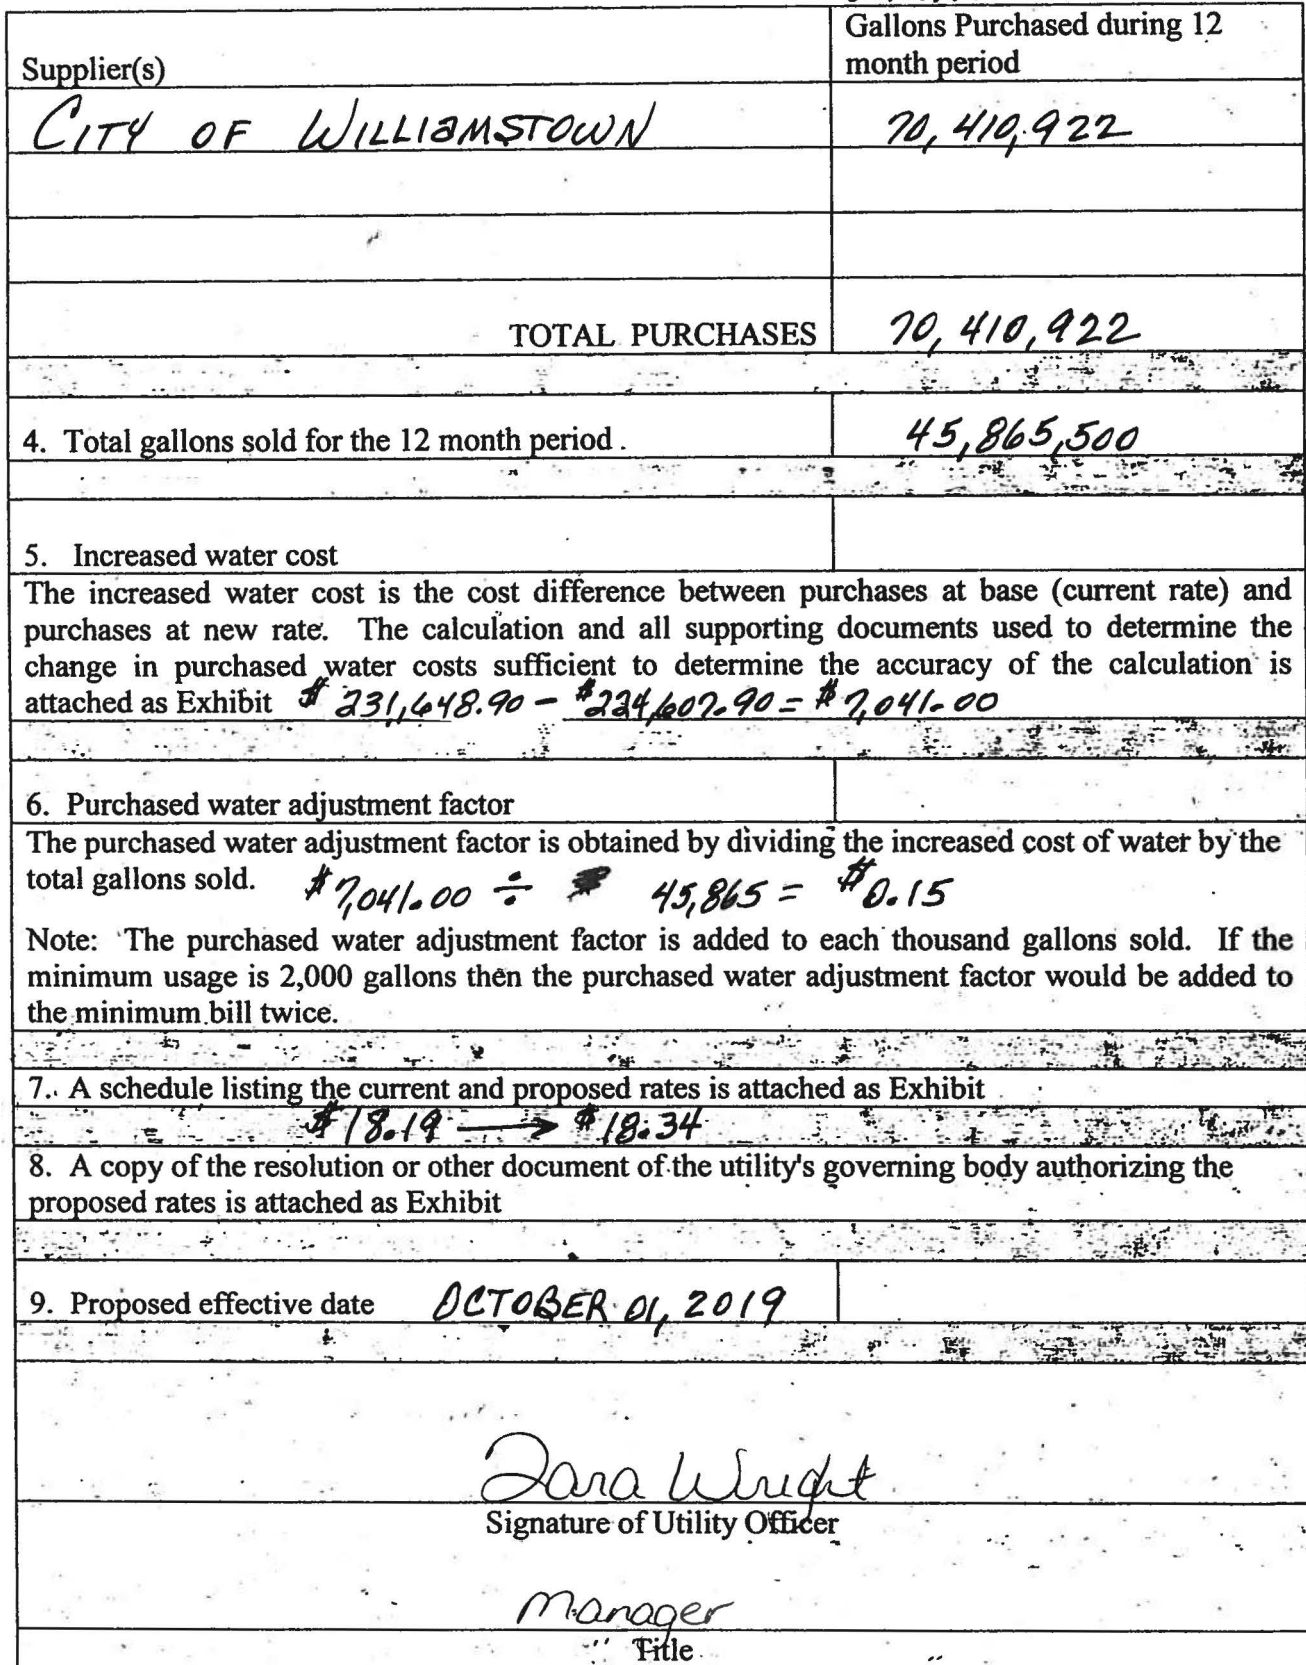 Gallons Purchased during 12
month period
Supplier(s)
CITY OF WILLIAMSTOWN 70,410,922
TOTAL PURCHASES 70,410,922
4. Total gallons sold for the 12 month period . 45,865,500
5. Increased water cost
The increased water cost is the cost difference between purchases at base (current rate) and
purchases at new rate. The calculation and all supporting documents used to determine the
change in purchased water costs sufficient to determine the accuracy of the calculation is
attached as Exhibit $231,648.90 - $224,607.90 = $7,041.00
6. Purchased water adjustment factor
The purchased water adjustment factor is obtained by dividing the increased cost of water by the
total gallons sold. $7,041.00 ÷ 45,865 = $0.15
Note: The purchased water adjustment factor is added to each thousand gallons sold. If the
minimum usage is 2,000 gallons then the purchased water adjustment factor would be added to
the minimum bill twice.
7. A schedule listing the current and proposed rates is attached as Exhibit
$18.19 → $18.34
8. A copy of the resolution or other document of the utility's governing body authorizing the
proposed rates is attached as Exhibit
9. Proposed effective date OCTOBER 01, 2019
Tara Wright
Signature of Utility Officer
Manager
Title